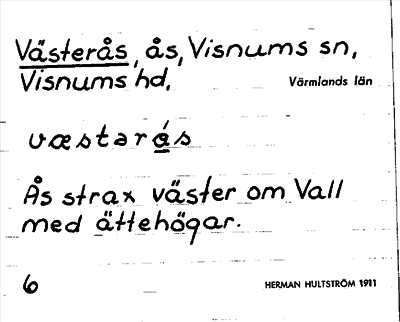 Västerås, ås, Visnums sn,
Visnums hd. Värmlands län
væstarás
Ås strax väster om Vall
med ättehögar.
6 HERMAN HULTSTRÖM 1911